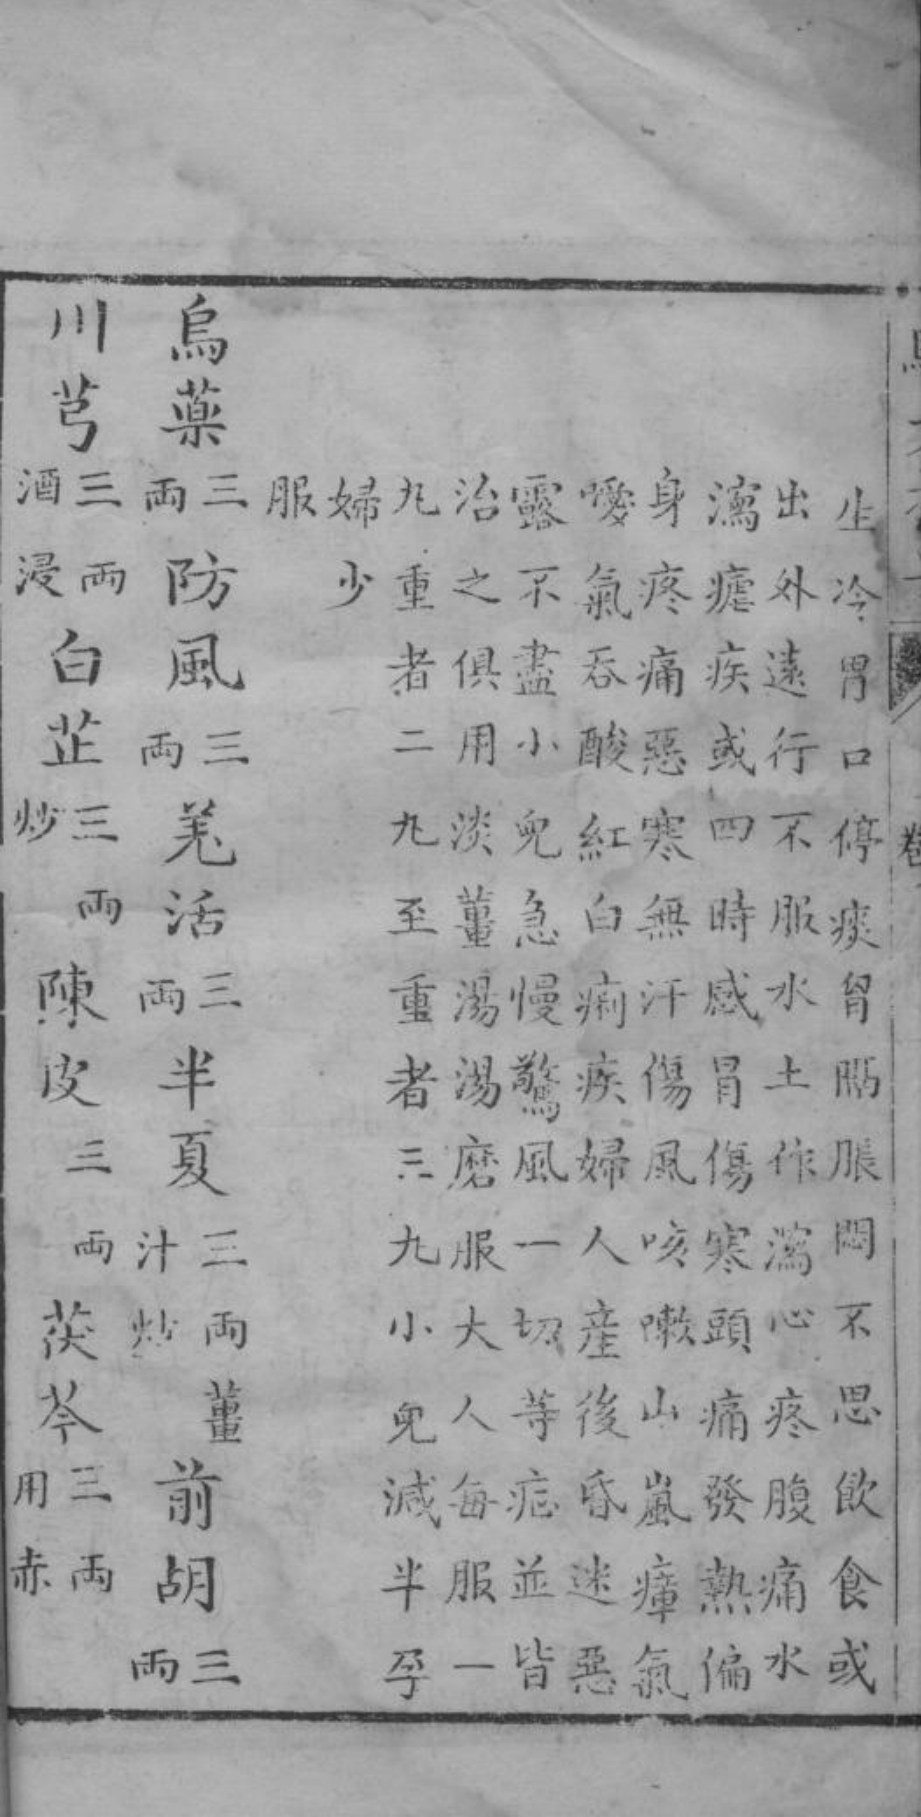 生冷胃口停痰胷膈脹悶不思飲食或
出外遠行不服水土作瀉心疼腹痛水
瀉瘧疾或四時感冒傷寒頭痛發熱偏
身疼痛惡寒無汗傷風咳嗽山嵐瘴氣
噯氣吞酸紅白痢疾婦人產後昏迷惡
露不盡小兒急慢驚風一切等症並皆
治之俱用淡薑湯湯磨服大人每服一
九重者二九至重者三九小兒減半孕
婦少
服
烏藥三兩防風三兩羌活三兩半夏三兩薑汁炒前胡三兩
川芎三兩酒浸白芷三兩炒陳皮三兩茯苓三兩用赤